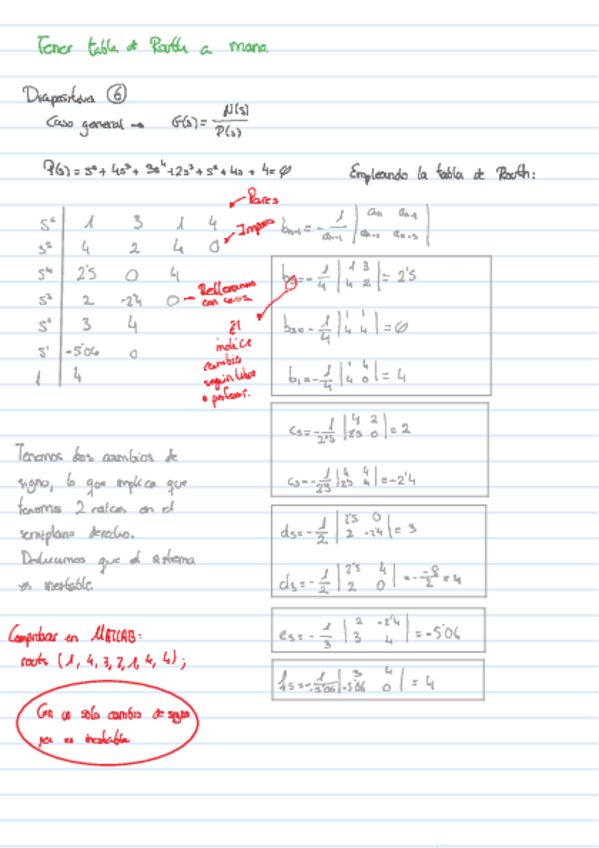 Tener tabla de Routh a mano.
Diapositiva 6
Caso general → G(s) = N(s) / P(s)
P(s) = s⁶ + 4s⁵ + 3s⁴ + 2s³ + s² + 4s + 4 = 0
Empleando la tabla de Routh:
Pares
s⁶ | 1 3 1 4
Impares
s⁵ | 4 2 4 0
s⁴ | 2'5 0 4
s³ | 2 -2'4 0 → Rellenamos con ceros
s² | 3 4
s¹ | -5'06 0
1 | 4
El
índice
cambia
según libro
o profesor.
-1/4 | 1 3 ; 4 2 | = 2'5
-1/4 | 1 1 ; 4 4 | = 0
b₁ = -1/4 | 1 4 ; 4 0 | = 4
-1/2'5 | 4 2 ; 2'5 0 | = 2
-1/2'5 | 4 4 ; 2'5 4 | = -2'4
-1/2 | 2'5 0 ; 2 -2'4 | = 3
-1/2 | 2'5 4 ; 2 0 | = - -8/2 = 4
-1/3 | 2 -2'4 ; 3 4 | = -5'06
| 3 4 ; -5'06 0 | = 4
Tenemos dos cambios de
signo, lo que implica que
tenemos 2 raíces en el
semiplano derecho.
Deducimos que el sistema
es inestable.
Comprobar en MATLAB:
routh (1, 4, 3, 2, 1, 4, 4);
Con un solo cambio de signo
ya es inestable